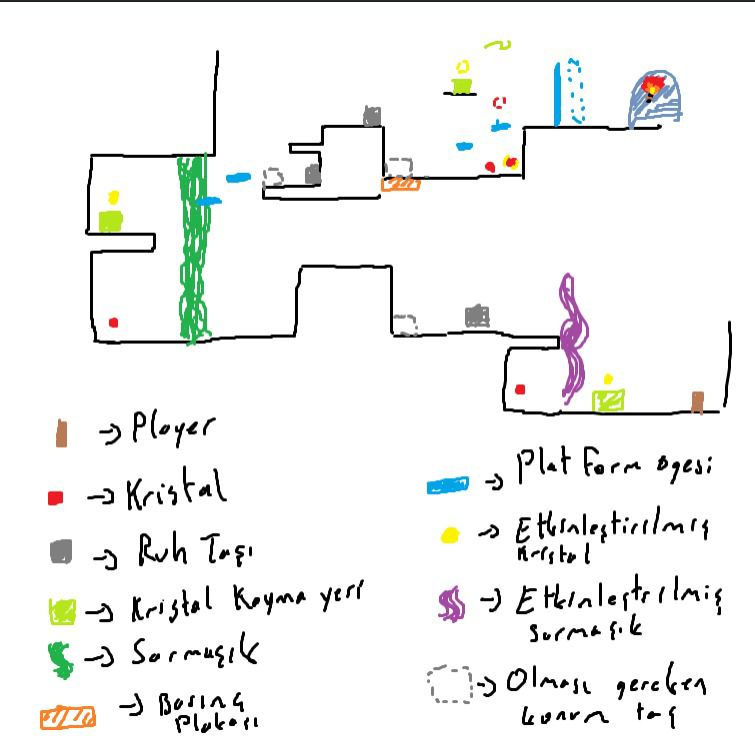 -> Player
-> Kristal
-> Ruh Taşı
-> Kristal Koyma yeri
-> Sarmaşık
-> Basınç
Plakası
-> Platform ögesi
-> Etkinleştirilmiş
Kristal
-> Etkinleştirilmiş
sarmaşık
-> Olması gereken
konum taş